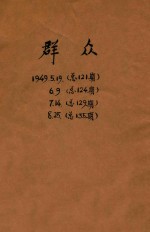 群众
1949.5.19 (总121期)
6.9 (总124期)
7.14 (总129期)
8.25 (总135期)